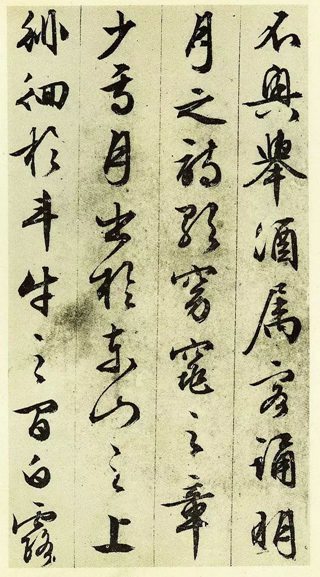 不興舉酒属客誦明
月之詩歌窈窕之章
少焉月出於東山之上
徘徊於斗牛之間白露